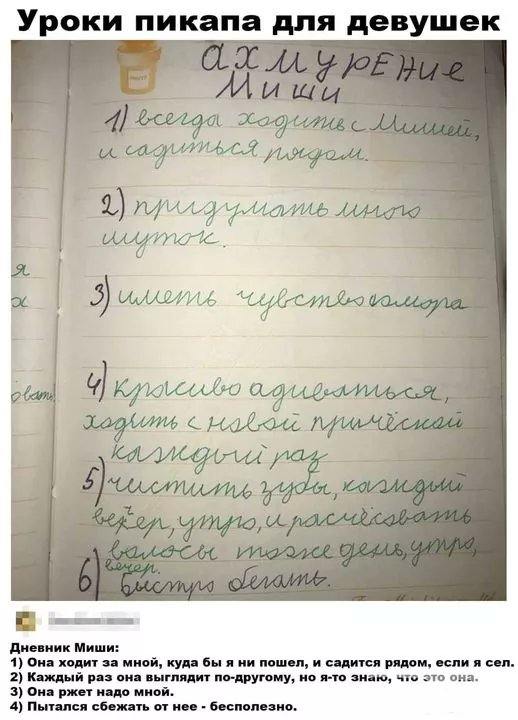 Уроки пикапа для девушек
ахмурение
Миши
1) всегда ходить с Мишей,
и садиться рядом.
2) придумать много
шуток.
я
х
3) иметь чувство юмора
овать
4) красиво адиваться,
ходить с новой причёской
каждый раз
5) чистить зубы, каждый
вечер, утро, и расчёсовать
волосы тоже день, утро,
вечер.
6) Быстро бегать.
Дневник Миши:
1) Она ходит за мной, куда бы я ни пошел, и садится рядом, если я сел.
2) Каждый раз она выглядит по-другому, но я-то знаю, что это она.
3) Она ржет надо мной.
4) Пытался сбежать от нее - бесполезно.